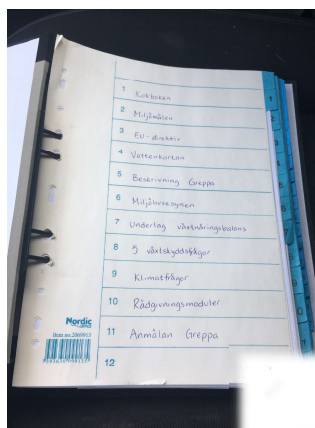 1 Kokboken
2 Miljömålen
3 EU-direktiv
4 Vattenkartan
5 Beskrivning Greppa
6 Miljöhusesynen
7 Underlag växtnäringsbalans
8 5 växtskyddsfrågor
9 Klimatfrågor
10 Rådgivningsmoduler
11 Anmälan Greppa
12
Nordic
Item no.2069013
1
2
3